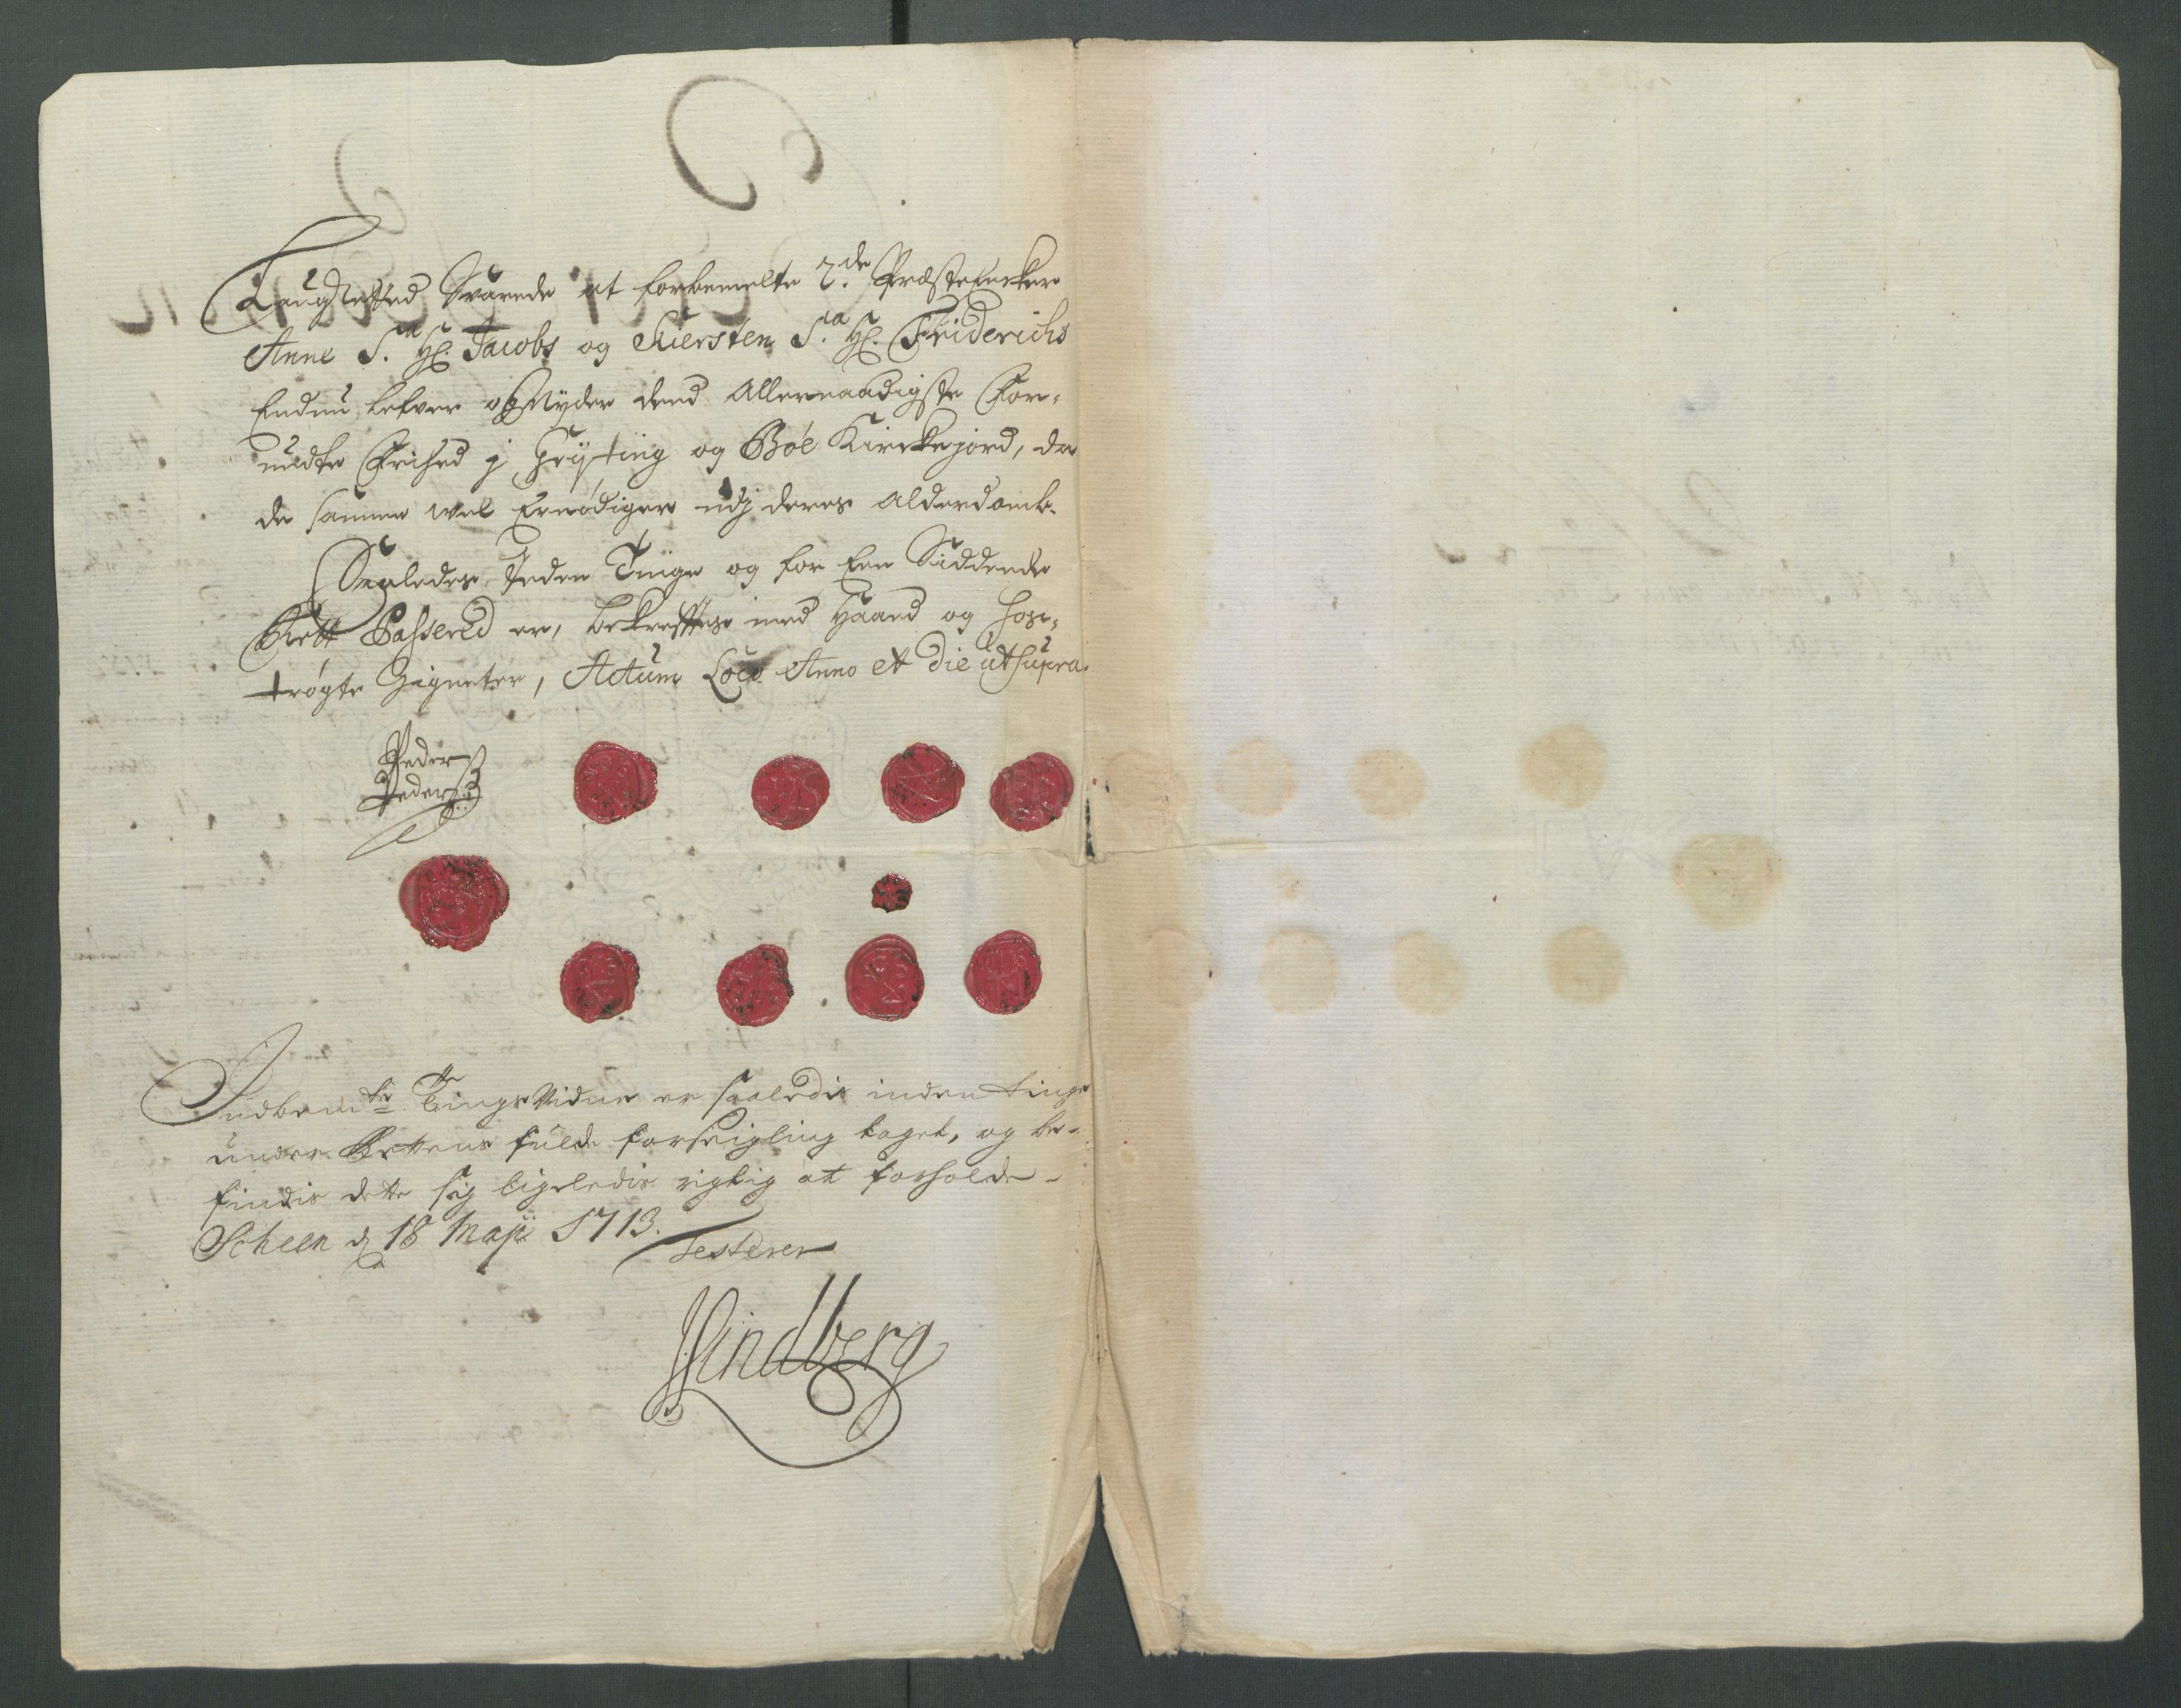 Laugretted Svarede at forbemelte 2.de Præsteencker
Anne S.a Hr. Jacobs og Kiersten S.a Hr. Friderichs
Endnu lefver og Nyder dend Allernaadigste For-
undte Frihed j Gryting og Böe Kirckejord, da
de samme vel Ernödiger udj deres Alderdomb.
Saaledes Jnden Tinge og for Een Siddende
Rett Passered er, bekreftes med Haand og hos-
trögte Zigneter, Actum Loco Anno et die ut supra.
Peder
Peders:
Indbem.te Tings Vidne er saaledis inden tinge
under Rettens fulde forseigling taget, og be-
findis dette sig ligeledis rigtig at forholde.
Scheen d. 18 Maji 1713.
Testerer
Lindberg